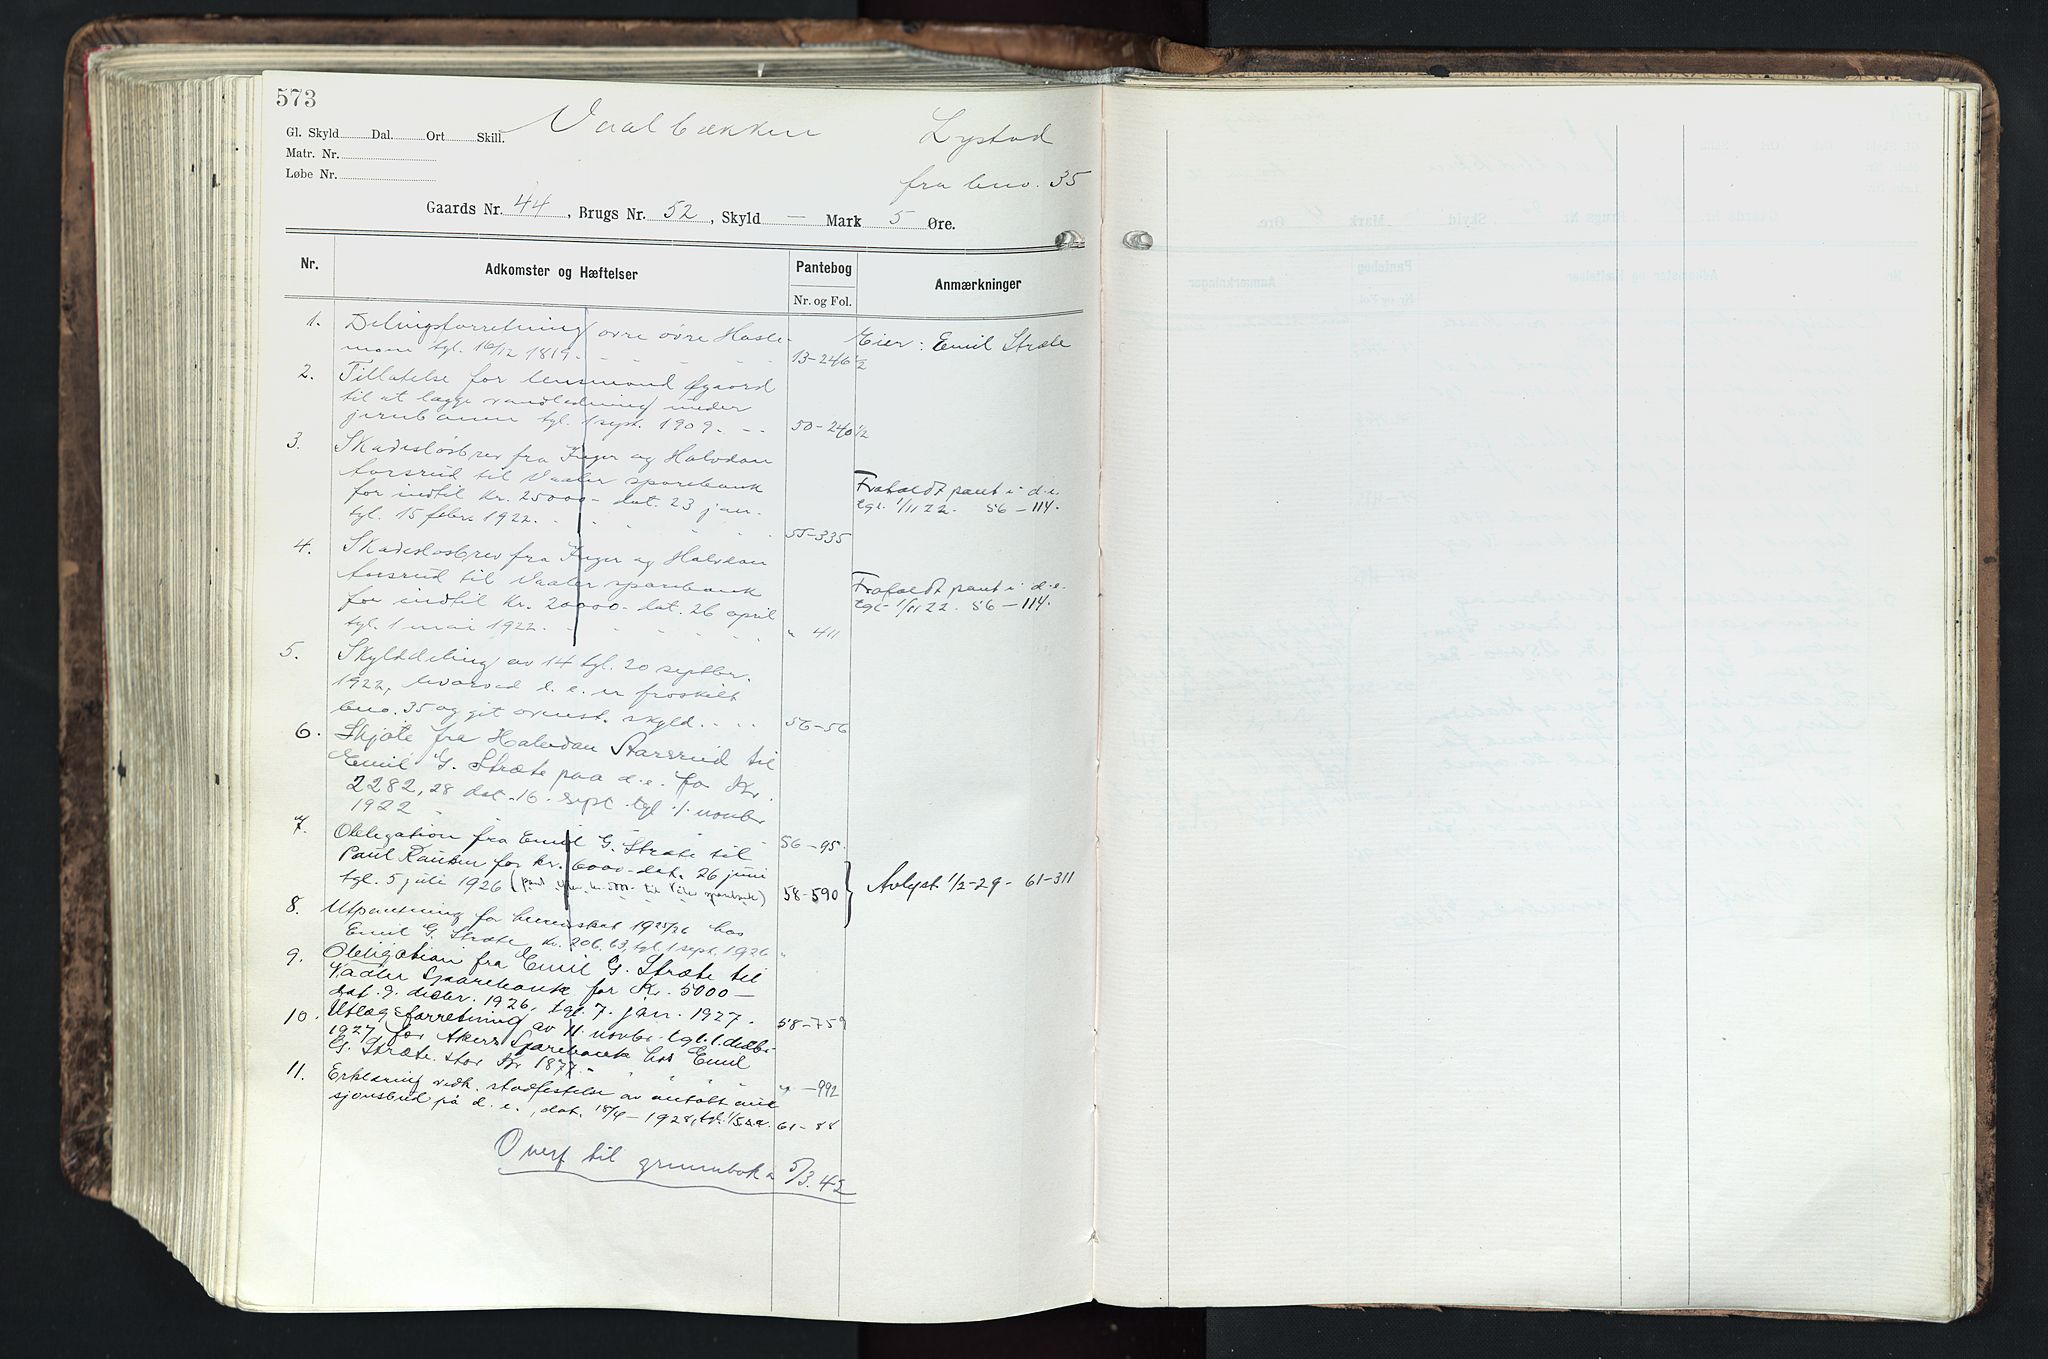 573
Vaalbækken Lystad
Gl. Skyld Dal. Ort Skill.
Matr. Nr.
Løbe Nr.
fra bno. 35
Gaards Nr. 44, Brugs Nr. 52, Skyld — Mark 5 Øre.
Nr. Adkomster og Hæftelser Pantebog Anmærkninger
Nr. og Fol.
1. Delingsforretning ovre øvre Hasle-
moen tgl. 16/12 1819. 13-246 1/2 Eier: Emil Stræte
2. Tillatelse for lensmand Øgaard
til at lægge vandledning under
jernbanen tgl. 1 sept. 1909. 50-240 1/2
3. Skadesløsbrev fra Inger og Halvdan
Aarsrud til Vaaler sparebank
for indtil kr. 25000- dat. 23 jan. Frafaldt pant i d.e.
tgl. 15 febr. 1922. 55-335 tgl. 1/11 22. 56-114.
4. Skadesløsbrev fra Inger og Halvdan
Aarsrud til Vaaler sparebank Frafaldt pant i d.e.
for indtil kr. 20000- dat. 26 april tgl. 1/11 22. 56-114.
tgl. 1 mai 1922. " 411
5. Skylddeling av 14 tgl. 20 septbr.
1922, hvorved d. e. er fraskilt
bno. 35 og git ovenst. skyld. 56-56
6. Skjøte fra Halvdan Aarsrud til
Emil G. Stræte paa d.e. for Kr.
2282,28 dat. 16. sept. tgl 1. novbr
1922 56-95.
7. Obligation fra Emil G. Stræte til
Paul Rauken for kr. 6000- dat. 26 juni
tgl. 5 juli 1926 58-590 Avlyst 1/2-29- 61-311
8. Utpantning for herredskat 1925/26 hos
Emil G. Stræte, kr. 206,63, tgl. 1 sept. 1926 "
9. Obligation fra Emil G. Stræte til
Vaaler Sparebank for Kr. 5000—
dat. 9. decbr. 1926, tgl. 7. jan. 1927. 58-759
10. Utlægsforretning av 11. novbr. tgl. 1. decbr.
1927 for Akers Sparebank hos Emil
G. Stræte. stor Kr 1877.- " -992
11. Erklæring vedk. stadfestelse av antatt
på d. e., dat. 18/4-1928, 61-88
Overf til grunnboka 5/3.42